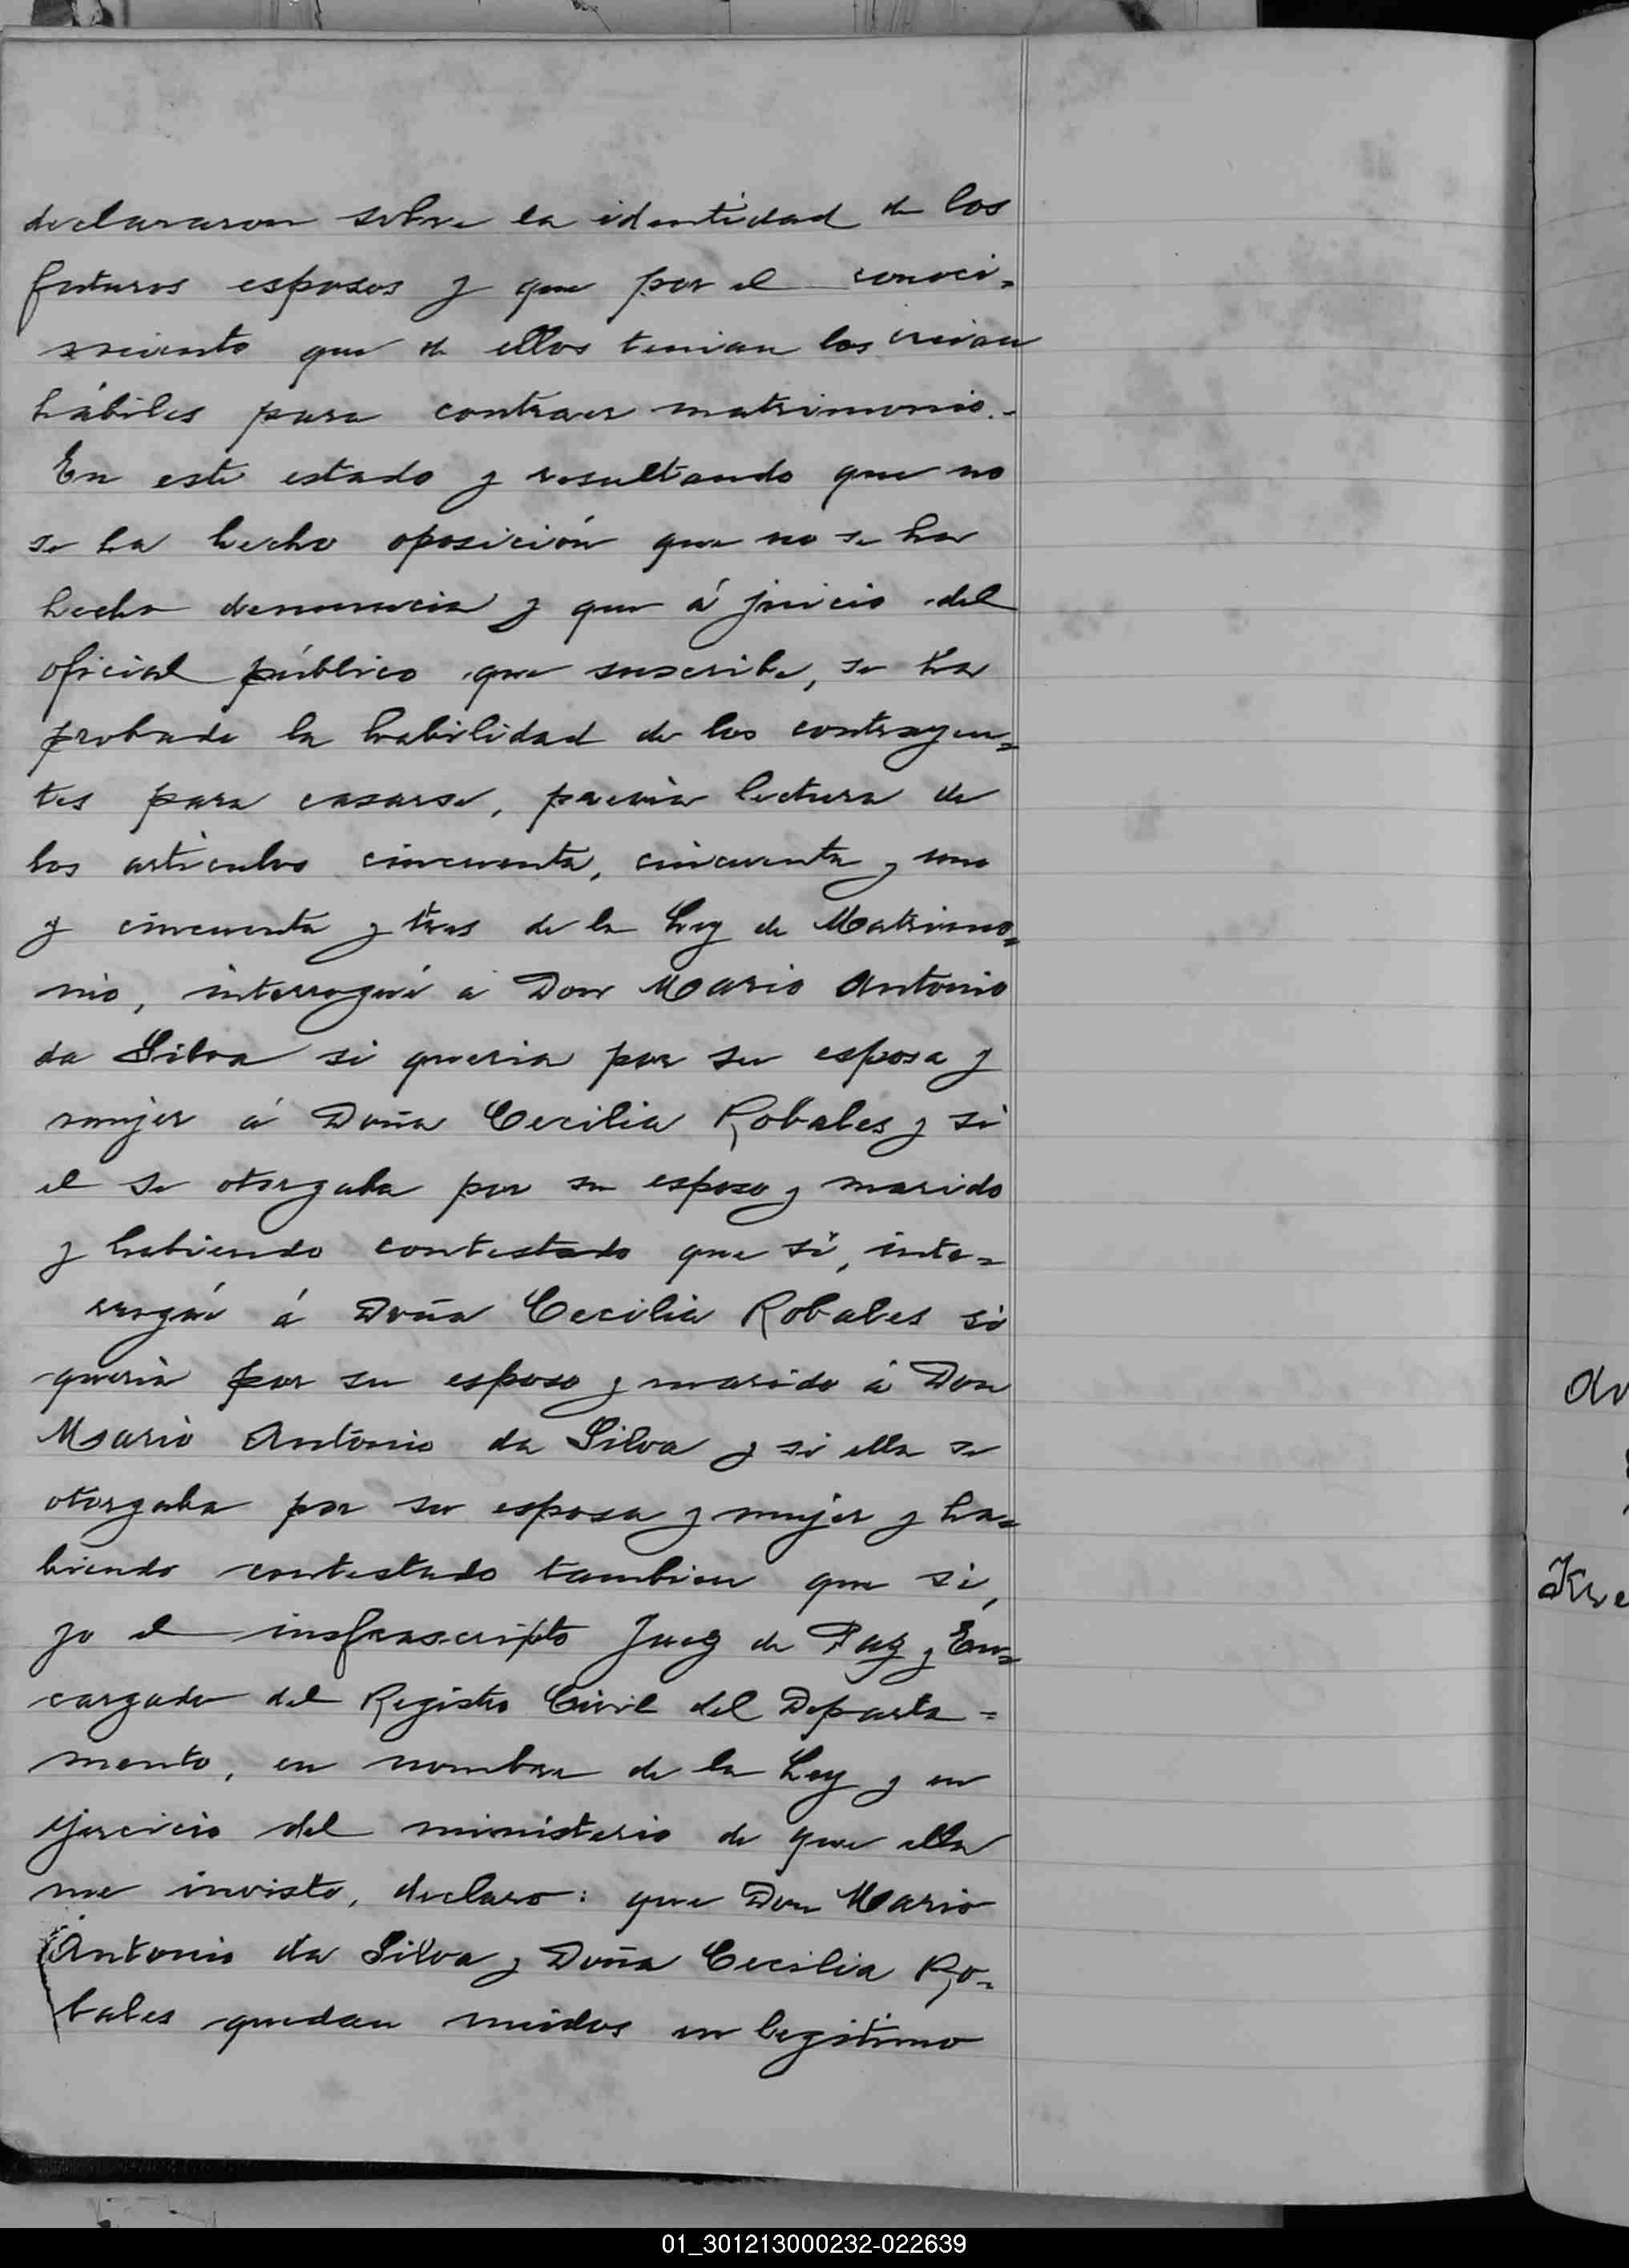 declararon sobre la identidad de los
futuros esposos y que por el conoci-
miento que de ellos tenian los creian
hábiles para contraer matrimonio.-
En este estado y resultando que no
se ha hecho oposición que no se ha
hecho denuncia y que á juicio del
oficial público que suscribe, se ha
probado la habilidad de los contrayen=
tes para casarse, previa lectura de
los articulos cincuenta, cincuenta y uno
y cincuenta y tres de la Ley de Matrimo=
nio, interrogué a Don Mario Antonio
da Silva si queria por su esposa y
mujer á Doña Cecilia Robales y si
el se otorgaba por su esposo y marido
y habiendo contestado que si, inte=
rrogué á Doña Cecilia Robales si
queria por su esposo y marido á Don
Mario Antonio da Silva y si ella se
otorgaba por su esposa y mujer y ha=
biendo contestado tambien que si,
yo el insfrascripto Juez de Paz y En=
cargado del Registro Civil del Departa=
mento, en nombre de la Ley y en
ejercicio del ministerio de que ella
me inviste, declaro: que Don Mario
Antonio da Silva y Doña Cecilia Ro-
bales quedan unidos en legitimo
01_301213000232-022639